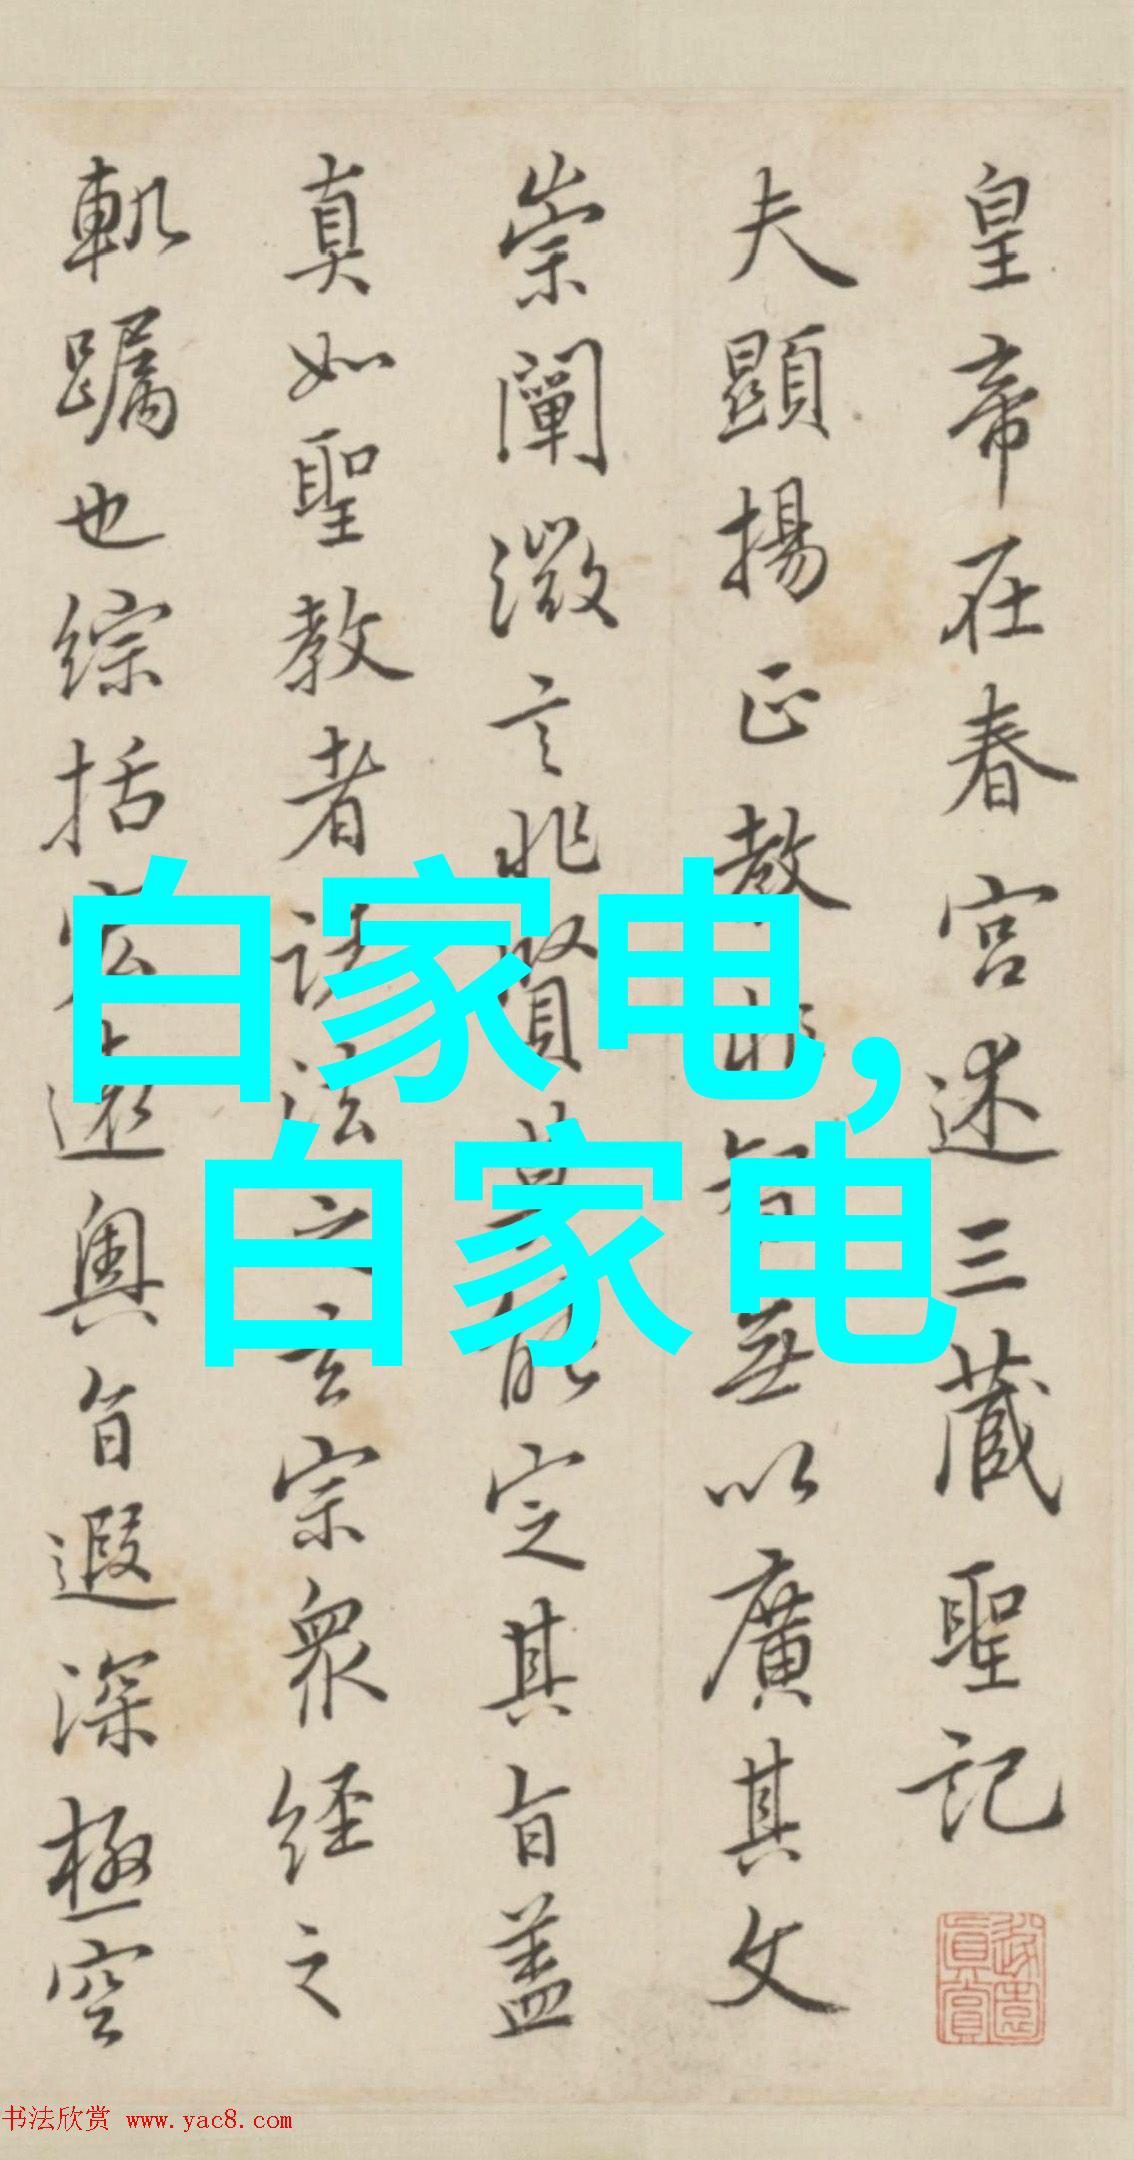 皇帝在春宮述三藏聖記
夫顯揚正教非智無以廣其文
崇闡微言非賢莫能定其旨蓋
真如聖教者諸法之玄宗眾經之
軌躅也綜括宏遠奧旨遐深極空
白家电,
白家电
书法欣赏 www.yac8.com